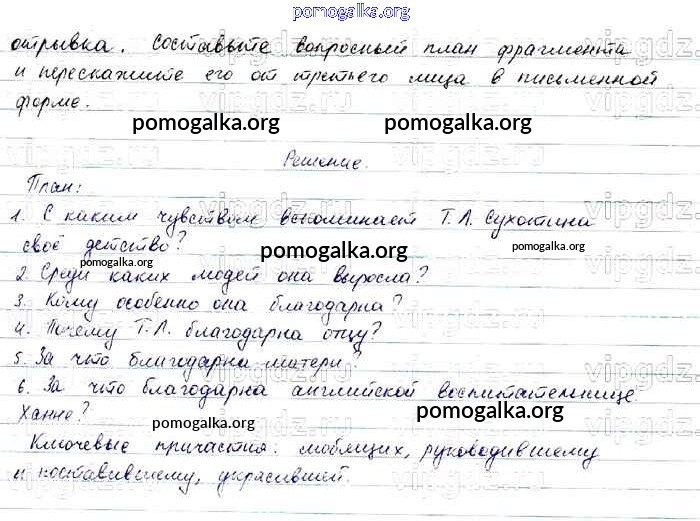 pomogalka.org
отрывка. Составьте вопросный план фрагмента
и перескажите его от третьего лица в письменной
форме.
pomogalka.org pomogalka.org
Решение.
План:
1. С каким чувством вспоминает Т.Л. Сухотина
своё детство?
pomogalka.org pomogalka.org pomogalka.org
2. Среди каких людей она выросла?
3. Кому особенно она благодарна?
4. Почему Т.Л. благодарна отцу?
5. За что благодарна матери?
pomogalka.org
6. За что благодарна английской воспитательнице
Ханне?
pomogalka.org pomogalka.org
Ключевые причастия: любящих, руководившему
и поставившему, украсившей.